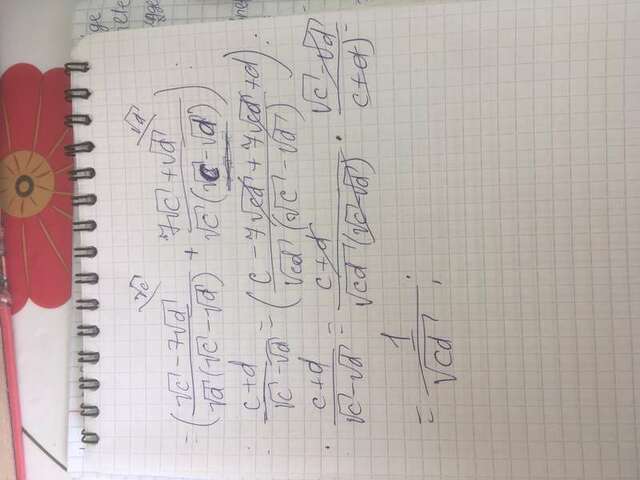 = ( (√c - 7√d)/(√d (√c - √d)) + (7√c + √d)/(√c (√c - √d)) ) :
: (c+d)/(√c - √d) = ( (c - 7√cd + 7√cd + d)/(√cd (√c - √d)) ) :
: (c+d)/(√c - √d) = (c+d)/(√cd (√c - √d)) · (√c - √d)/(c+d) =
= 1/√cd ;